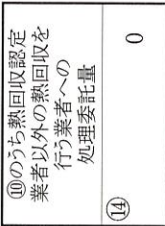 ⑩のうち熱回収認定
業者以外の熱回収を
行う業者への
処理委託量
⑭
0